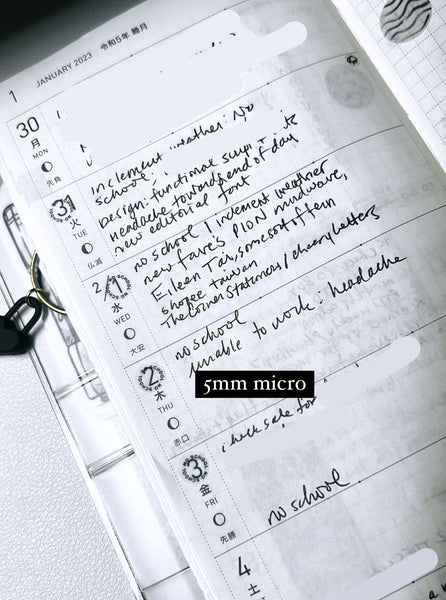 1 JANUARY 2023 令和5年 睦月
30
月
MON
先負
inclement weather: No
school;
Design: functional script - its
Headache toward end of day
new editorial font
31
火
TUE
仏滅
no school / inclement weather
new fave's PION mudwave,
Eileen Tai, some sort of tien
shopee taiwan
The Corner Stationers / cheery letters
2 1
水
WED
大安
no school
unable to work: headache
2
木
THU
赤口
5mm micro
check sale for
3
金
FRI
先勝
no school
4
土